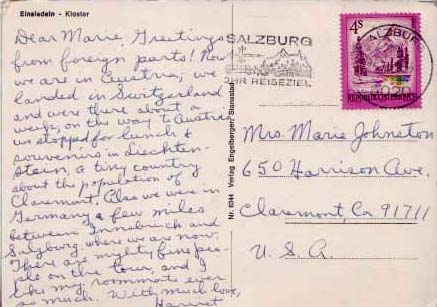 Einsiedeln - Kloster
Dear Marie, Greetings
from foreign parts! Now
we are in Austria; we
landed in Switzerland
and were there about a
week; on the way to Austria
we stopped for lunch &
souvenirs in Liechten-
stein, a tiny country
about the population of
Claremont. Also we were in
Germany a few miles
between Innsbruck and
Salzburg where we are now.
There are mighty fine peo-
ple on the tour, and I
like my roommate ever
so much. With much love,
Harriet
Nr. 6344 Verlag Engelberger, Stansstad
SALZBURG
IHR REISEZIEL
SALZBURG
5020
4S
REPUBLIK ÖSTERREICH
Mrs. Marie Johnston
650 Harrison Ave.
Claremont, Ca 91711
U.S.A.